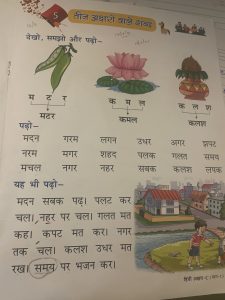 5
तीन अक्षरों वाले शब्द
देखो, समझो और पढ़ो-
म ट र
मटर
क म ल
कमल
क ल श
कलश
पढ़ो-
मदन गरम लगन उधर अगर झपट
नरम मगर शहद पलक गलत समय
मचल नगर नहर सबक कलश लपक
यह भी पढ़ो-
मदन सबक पढ़। पलट कर
चल। नहर पर चल। गलत मत
कह। कपट मत कर। नगर
तक चल। कलश उधर मत
रख। समय पर भजन कर।